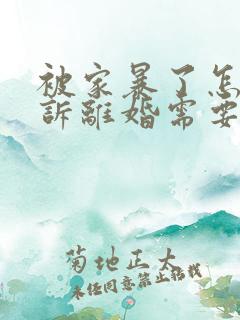 被家暴了怎
訴離婚需要
菊地正大
未經同意禁止搭載